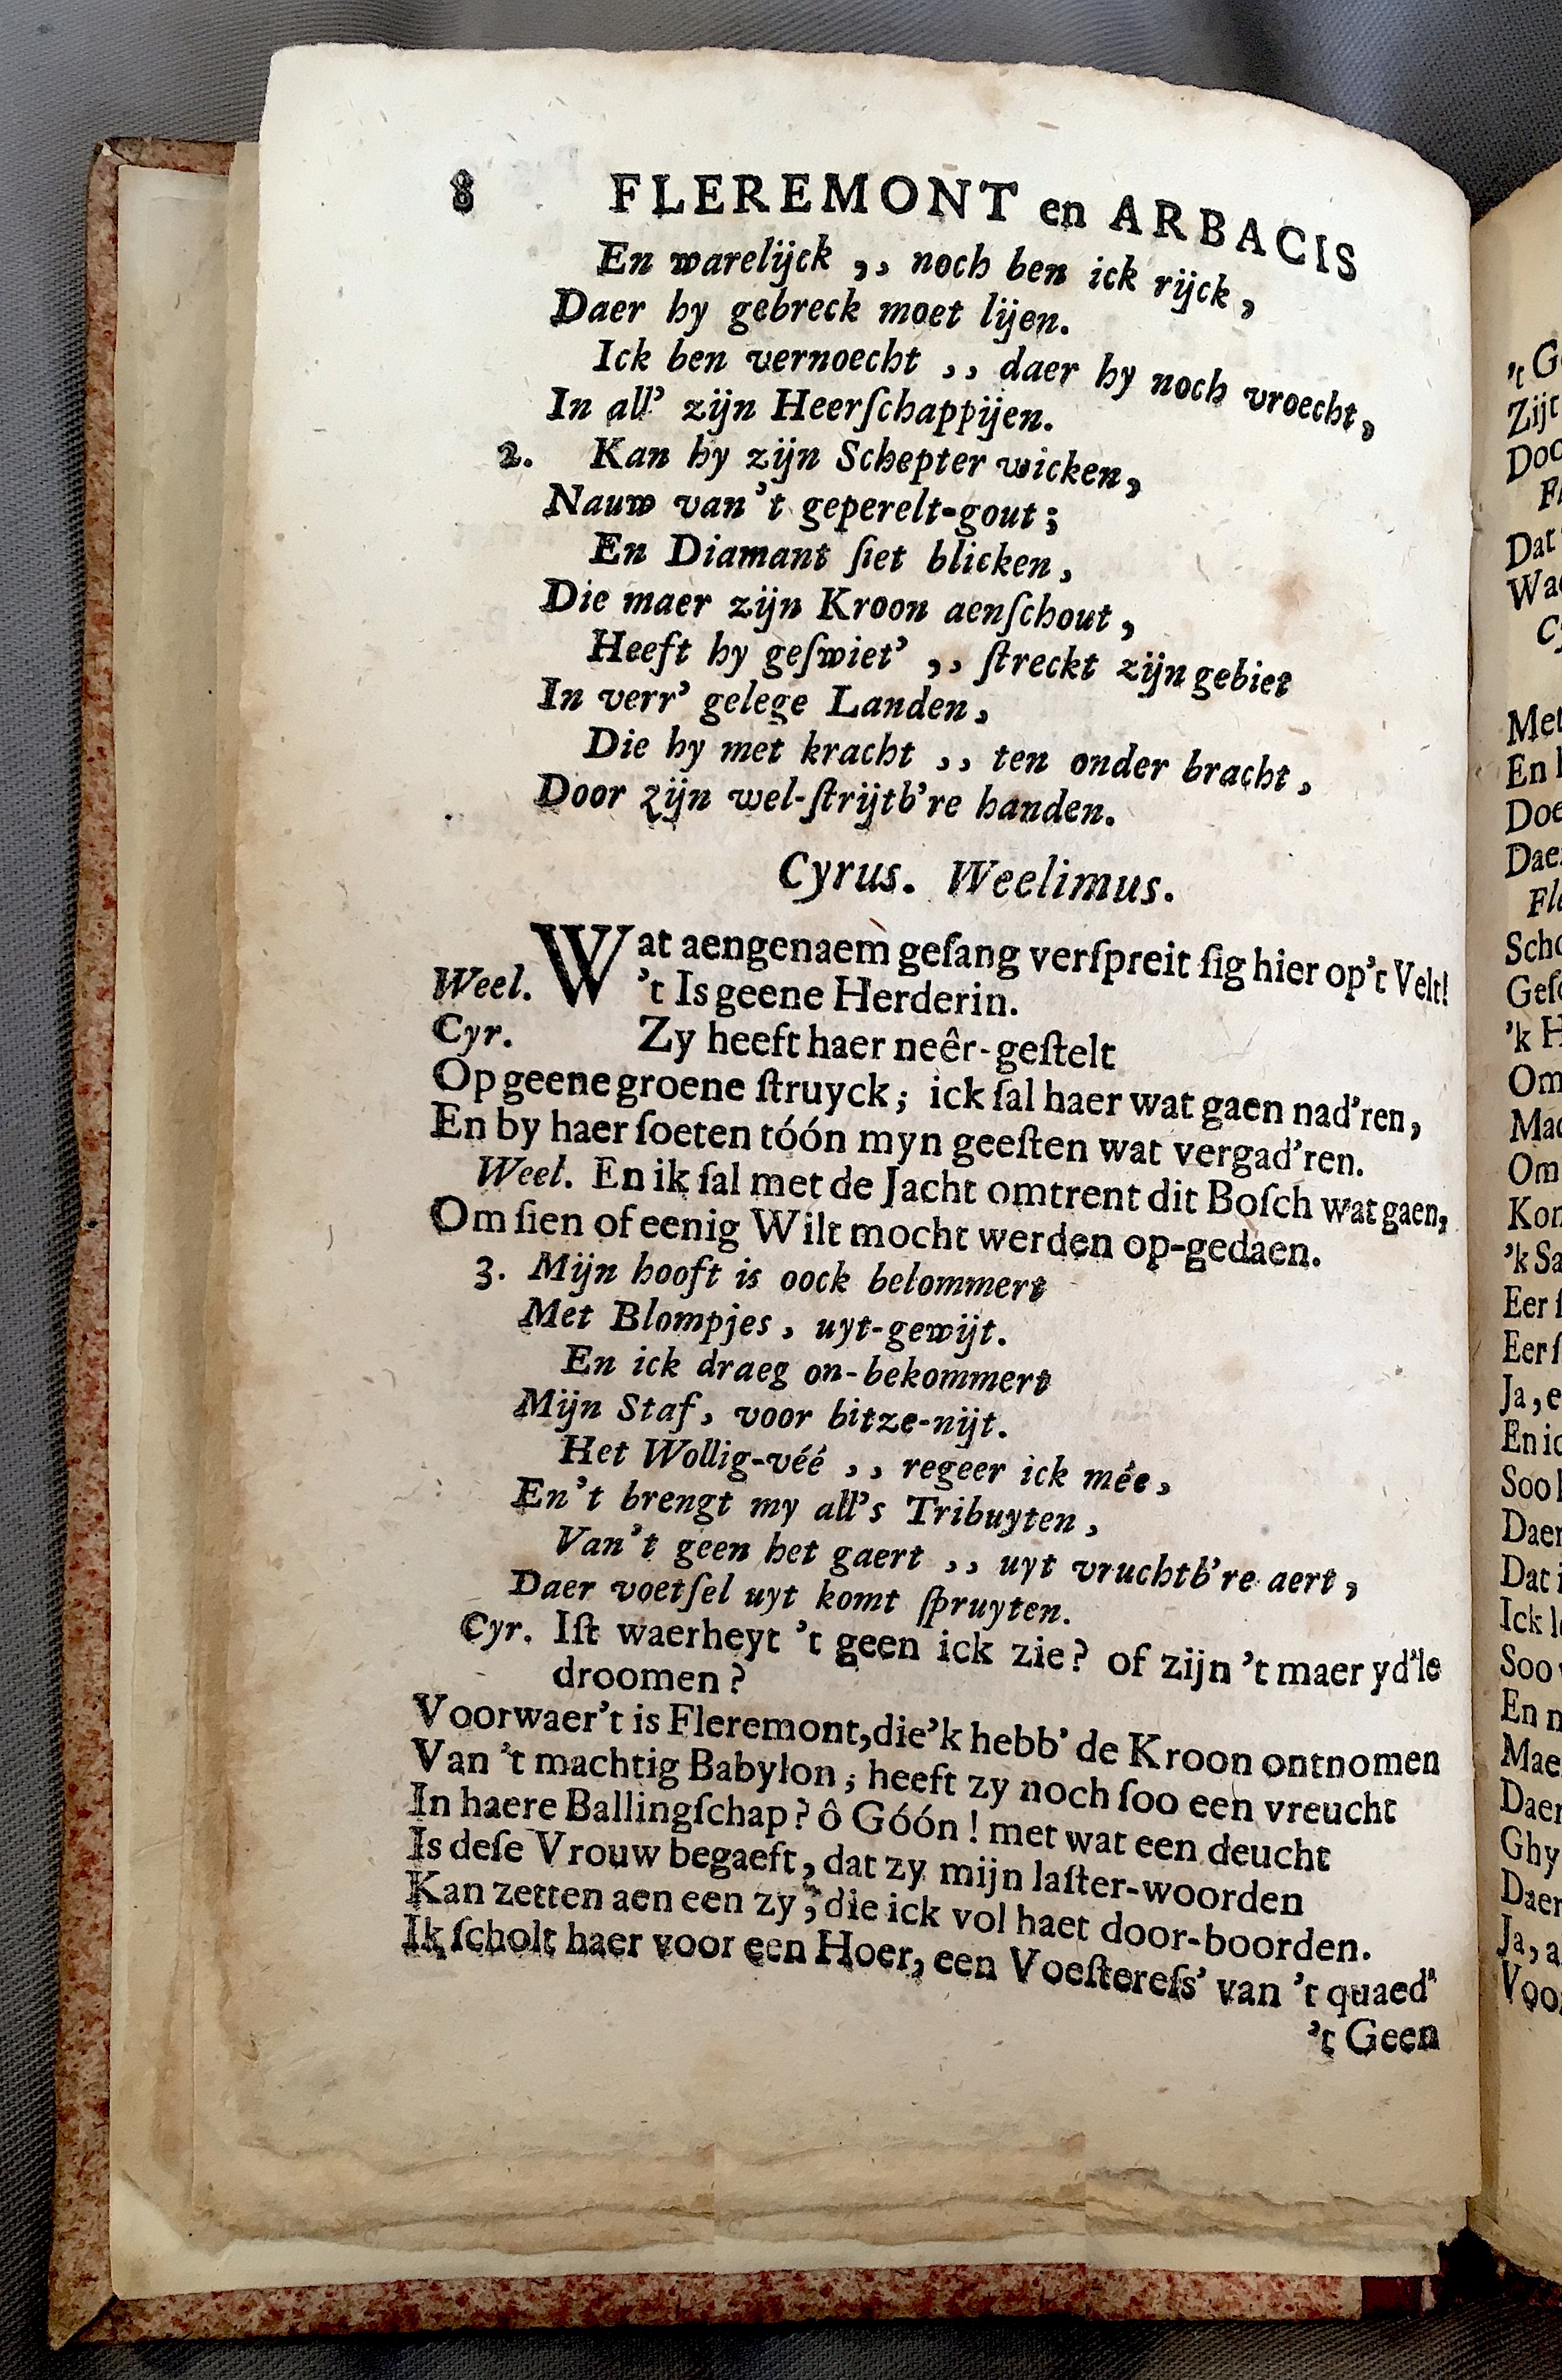 8 FLEREMONT en ARBACIS
En warelijck ,, noch ben ick rijck,
Daer hy gebreck moet lijen.
Ick ben vernoecht ,, daer hy noch vroecht,
In all' zijn Heerſchappijen.
2. Kan hy zijn Schepter wicken,
Nauw van't geperelt-gout;
En Diamant ſiet blicken,
Die maer zijn Kroon aenſchout,
Heeft hy geſwiet' ,, ſtreckt zijn gebiet
In verr' gelege Landen,
Die hy met kracht ,, ten onder bracht,
Door zijn wel-ſtrijtb're handen.
Cyrus. Weelimus.
Wat aengenaem geſang verſpreit ſig hier op't Velt!
Weel. 't Is geene Herderin.
Cyr. Zy heeft haer neêr-geſtelt
Op geene groene ſtruyck; ick ſal haer wat gaen nad'ren,
En by haer ſoeten tóón myn geeſten wat vergad'ren.
Weel. En ik ſal met de Jacht omtrent dit Boſch wat gaen,
Om ſien of eenig Wilt mocht werden op-gedaen.
3. Mijn hooft is oock belommert
Met Blompjes, uyt-gewijt.
En ick draeg on-bekommert
Mijn Staf, voor bitze-nijt.
Het Wollig-véé ,, regeer ick mée,
En't brengt my all's Tribuyten,
Van't geen het gaert ,, uyt vruchtb're aert,
Daer voetſel uyt komt ſpruyten.
Cyr. Iſt waerheyt 't geen ick zie? of zijn 't maer yd'le
droomen?
Voorwaer't is Fleremont, die'k hebb' de Kroon ontnomen
Van 't machtig Babylon; heeft zy noch ſoo een vreucht
In haere Ballingſchap? ô Góón! met wat een deucht
Is deſe Vrouw begaeft, dat zy mijn laſter-woorden
Kan zetten aen een zy, die ick vol haet door-boorden.
Ik ſcholt haer voor een Hoer, een Voeſtereſs' van 't quaed'
't Geen